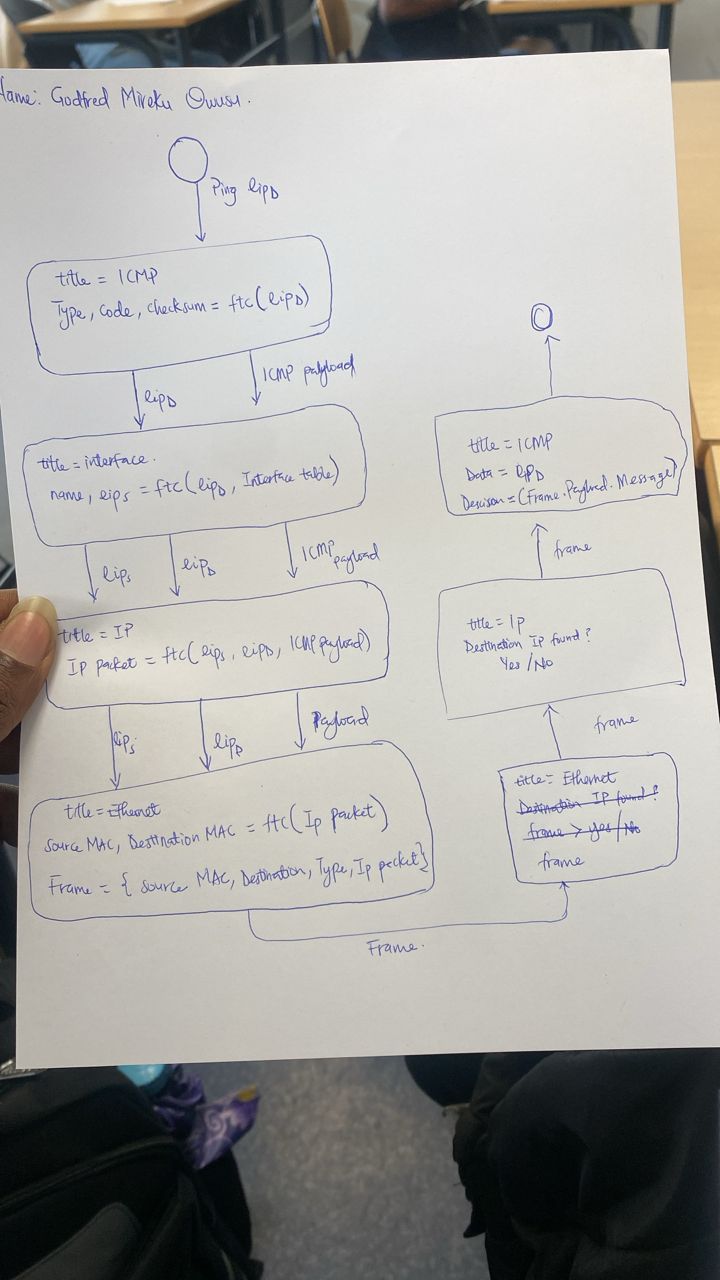 Name: Godfred Mireku Owusu.
Ping @ipD
title = ICMP
Type, Code, checksum = ftc(@ipD)
@ipD
ICMP payload
title = interface.
name, @ips = ftc(@ipD, Interface table)
@ips
@ipD
ICMP payload
title = IP
IP packet = ftc(@ips, @ipD, ICMP payload)
@ips
@ipD
Payload
title = Ethernet
source MAC, Destination MAC = ftc(Ip packet)
Frame = { source MAC, Destination, Type, Ip packet}
Frame.
title = Ethernet
Destination IP found?
frame > Yes/No
frame
frame
title = Ip
Destination IP found?
Yes / No
frame
title = ICMP
Data = @ipD
Descison = (Frame.Payload.Message)